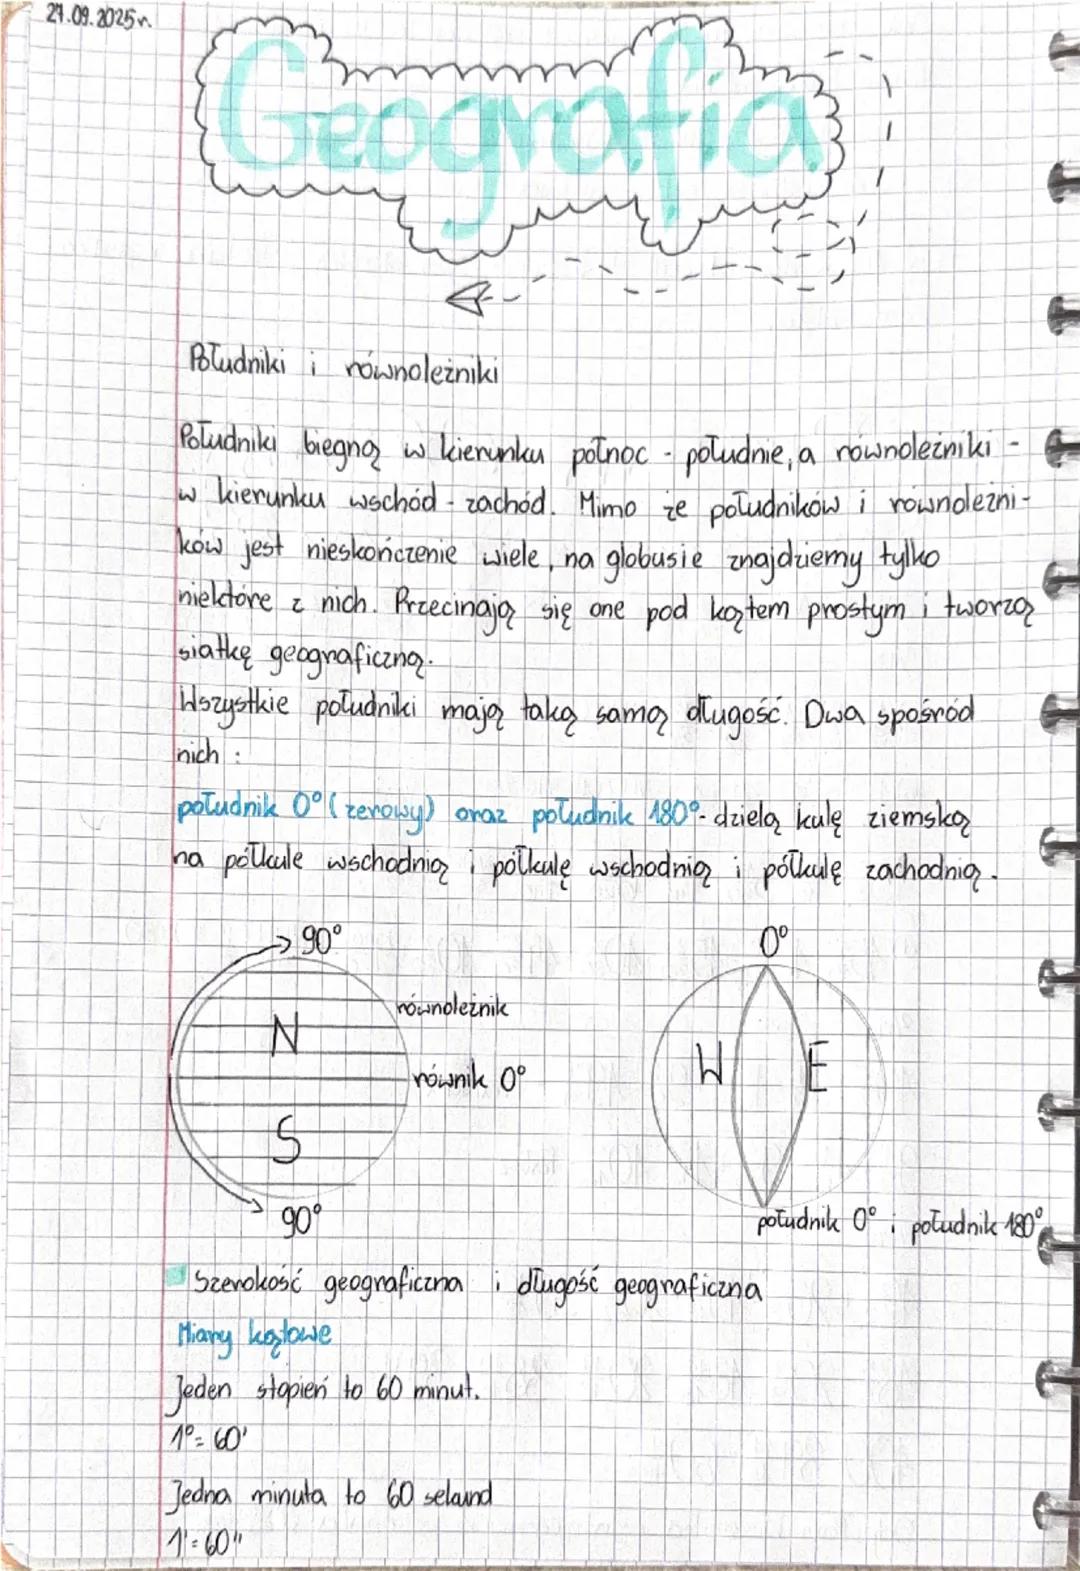 27.09.2025r.
Geografia
Południki i równoleżniki
Południki biegną w kierunku północ - południe, a równoleżniki -
w kierunku wschód - zachód. Mimo że południków i równoleżni-
ków jest nieskończenie wiele, na globusie znajdziemy tylko
niektóre z nich. Przecinają się one pod kątem prostym i tworzą
siatkę geograficzną.
Wszystkie południki mają taką samą długość. Dwa spośród
nich :
południk 0° (zerowy) oraz południk 180° - dzielą kulę ziemską
na półkule wschodnią i półkulę wschodnią i półkulę zachodnią.
90°
równoleżnik
N
równik 0°
S
90°
0°
W E
południk 0° i południk 180°
Szerokość geograficzna i długość geograficzna
Miary kątowe
Jeden stopień to 60 minut.
1°= 60'
Jedna minuta to 60 sekund
1'= 60"